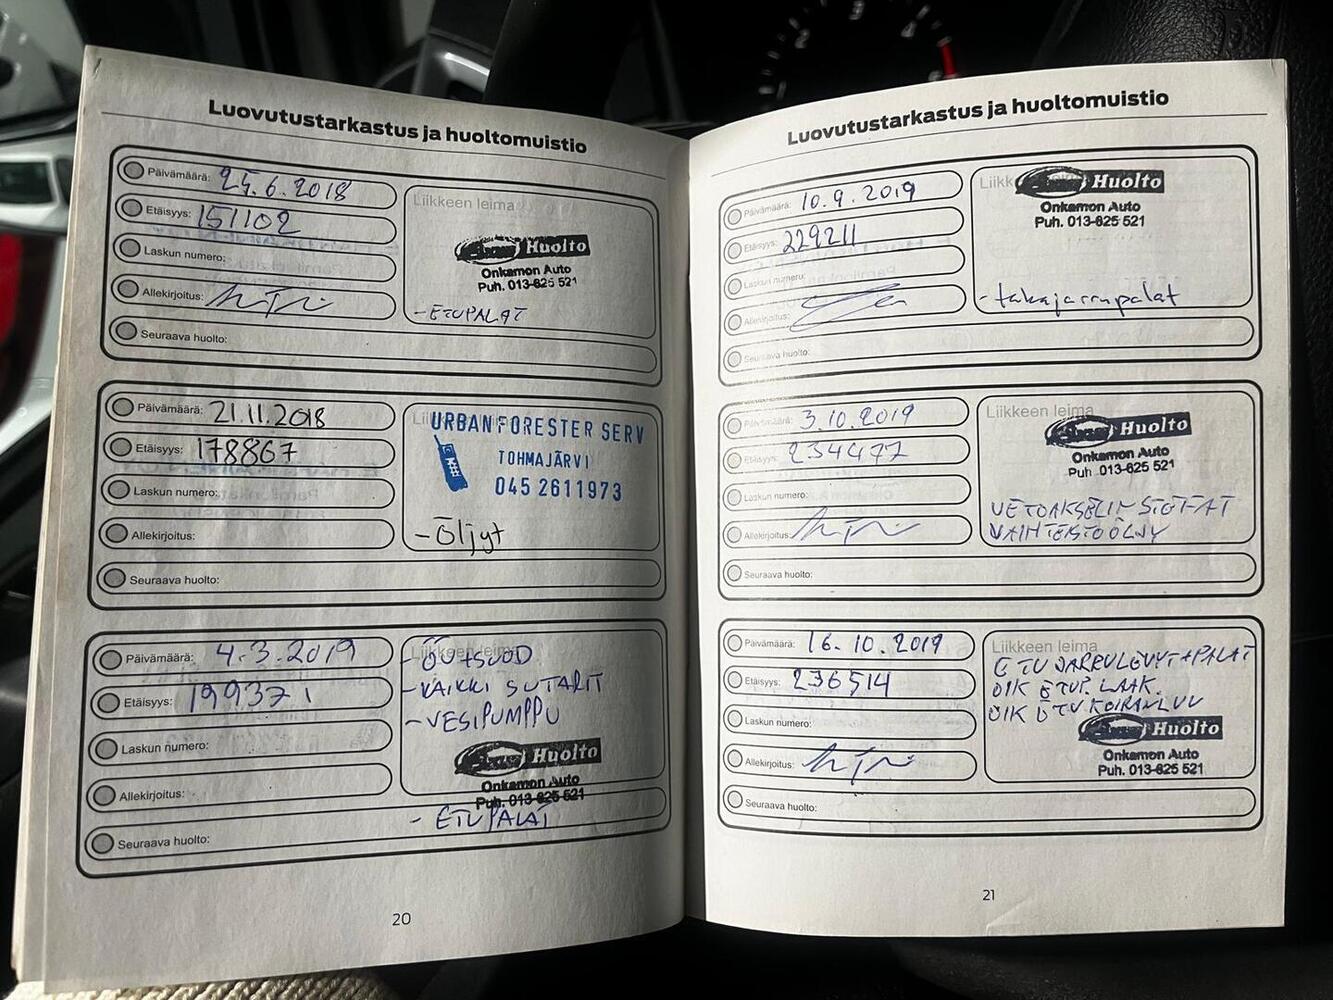 Luovutustarkastus ja huoltomuistio
Päivämäärä: 25.6.2018
Etäisyys: 151102
Laskun numero:
Allekirjoitus:
Seuraava huolto:
Liikkeen leima
Huolto
Onkamon Auto
Puh. 013-625 521
- ETUPALAT
Päivämäärä: 21.11.2018
Etäisyys: 178867
Laskun numero:
Allekirjoitus:
Seuraava huolto:
URBAN FORESTER SERV
TOHMAJÄRVI
045 2611973
- Öljyt
Päivämäärä: 4.3.2019
Etäisyys: 199371
Laskun numero:
Allekirjoitus:
Seuraava huolto:
Liikkeen leima
- ÖLJY+SUOD
- KAIKKI SUTARIT
- VESIPUMPPU
Huolto
Onkamon Auto
Puh. 013-625 521
- ETUPALAT
20
Luovutustarkastus ja huoltomuistio
Päivämäärä: 10.9.2019
Etäisyys: 229211
Laskun numero:
Allekirjoitus:
Seuraava huolto:
Huolto
Onkamon Auto
Puh. 013-625 521
- takajarrupalat
Päivämäärä: 3.10.2019
Etäisyys: 234477
Laskun numero:
Allekirjoitus:
Seuraava huolto:
Liikkeen leima
Huolto
Onkamon Auto
Puh. 013-625 521
VETOAKSELIN STEFAT
VAIHTEISTOÖLJY
Päivämäärä: 16.10.2019
Etäisyys: 236514
Laskun numero:
Allekirjoitus:
Seuraava huolto:
Liikkeen leima
ETU JARRULEVYT+PALAT
OIK ETUP. LAAK.
OIK ETU KOIRANLUU
Huolto
Onkamon Auto
Puh. 013-625 521
21